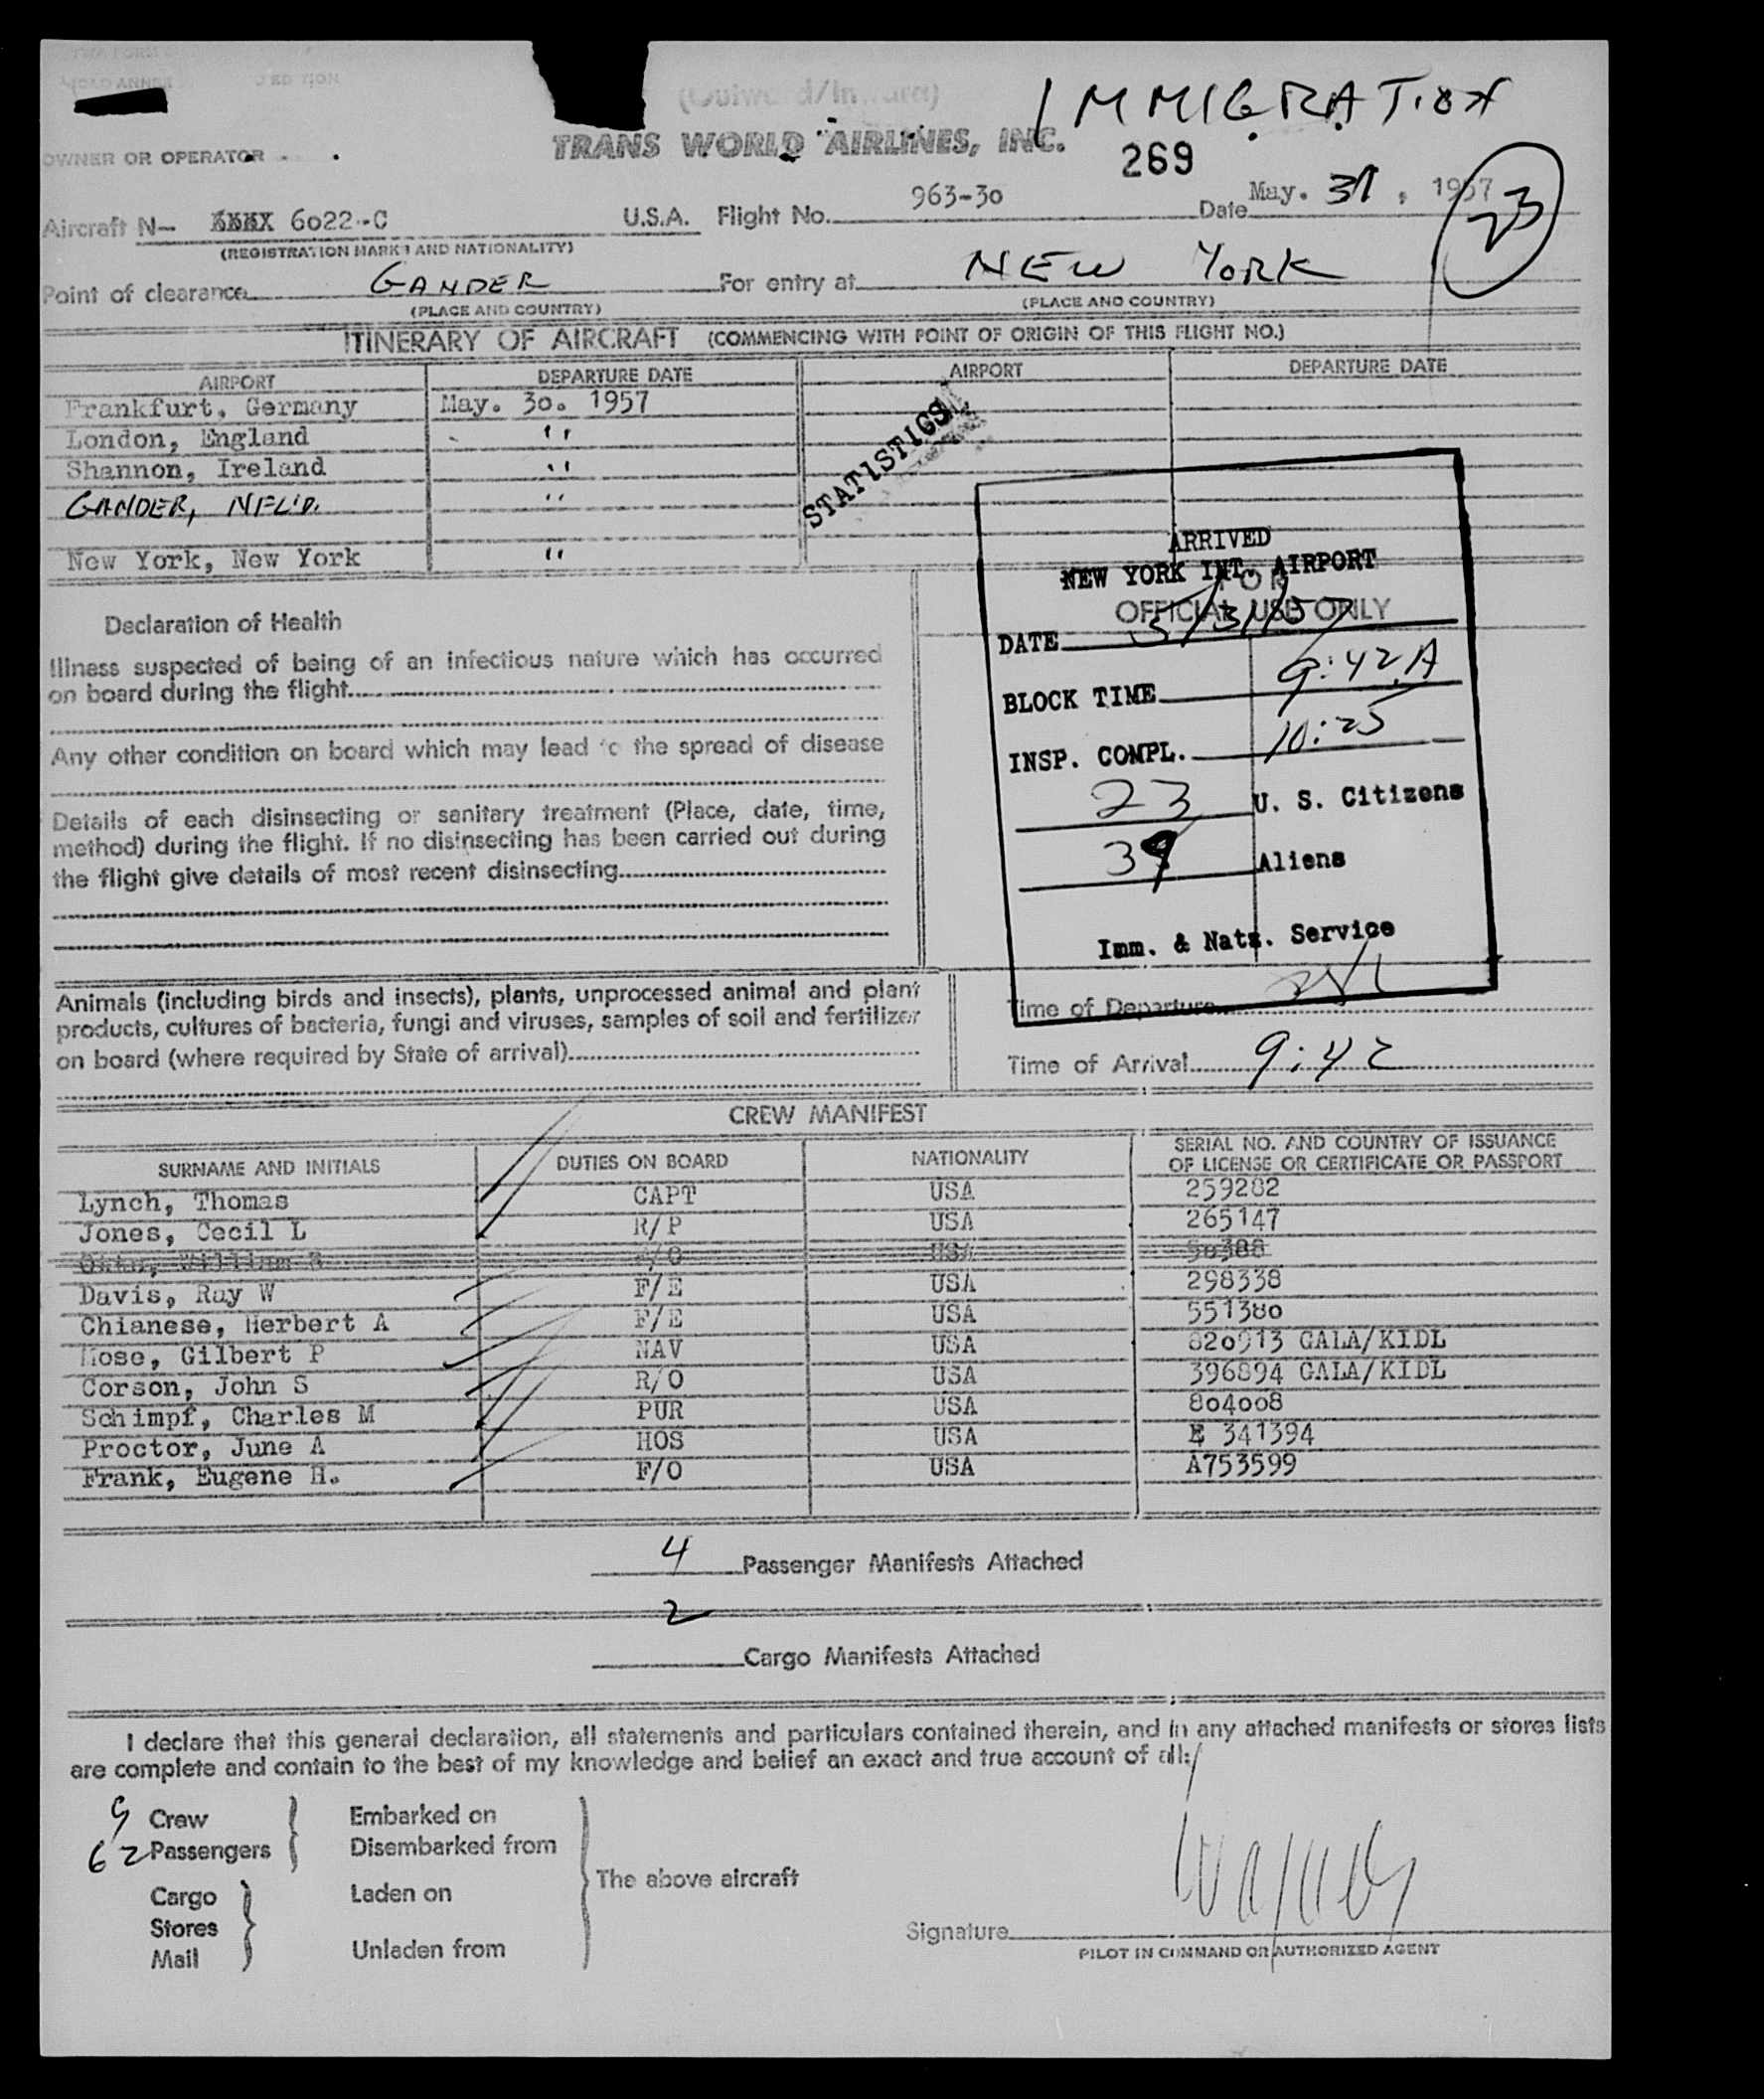 IMMIGRATION
TRANS WORLD AIRLINES, INC.
269
OWNER OR OPERATOR
Aircraft N- 6022-C U.S.A. Flight No. 963-30 Date May. 31, 1957
23
(REGISTRATION MARKS AND NATIONALITY)
Point of clearance GANDER For entry at NEW YORK
(PLACE AND COUNTRY) (PLACE AND COUNTRY)
ITINERARY OF AIRCRAFT (COMMENCING WITH POINT OF ORIGIN OF THIS FLIGHT NO.)
AIRPORT DEPARTURE DATE AIRPORT DEPARTURE DATE
Frankfurt, Germany May. 30. 1957
London, England "
Shannon, Ireland "
GANDER, NFL'D. "
New York, New York "
STATISTICS
ARRIVED
NEW YORK INT. AIRPORT
FOR
OFFICIAL USE ONLY
DATE 5/31/57
BLOCK TIME 9:42 A
INSP. COMPL. 10:25
23 U. S. Citizens
39 Aliens
Imm. & Natz. Service
Declaration of Health
Illness suspected of being of an infectious nature which has occurred
on board during the flight
Any other condition on board which may lead to the spread of disease
Details of each disinsecting or sanitary treatment (Place, date, time,
method) during the flight. If no disinsecting has been carried out during
the flight give details of most recent disinsecting
Animals (including birds and insects), plants, unprocessed animal and plant
products, cultures of bacteria, fungi and viruses, samples of soil and fertilizer
on board (where required by State of arrival)
Time of Departure
Time of Arrival 9:42
CREW MANIFEST
SURNAME AND INITIALS DUTIES ON BOARD NATIONALITY SERIAL NO. AND COUNTRY OF ISSUANCE
OF LICENSE OR CERTIFICATE OR PASSPORT
Lynch, Thomas CAPT USA 259282
Jones, Cecil L R/P USA 265147
William USA
Davis, Ray W F/E USA 298338
Chianese, Herbert A F/E USA 551380
Gilbert P NAV USA 820913 GALA/KIDL
Corson, John S R/O USA 396894 GALA/KIDL
Schimpf, Charles M PUR USA 804008
Proctor, June A HOS USA E 341394
Frank, Eugene H. F/O USA A753599
4 Passenger Manifests Attached
2
Cargo Manifests Attached
I declare that this general declaration, all statements and particulars contained therein, and in any attached manifests or stores lists
are complete and contain to the best of my knowledge and belief an exact and true account of all:
9 Crew Embarked on
62 Passengers Disembarked from
The above aircraft
Cargo Laden on
Stores
Mail Unladen from
Signature
PILOT IN COMMAND OR AUTHORIZED AGENT